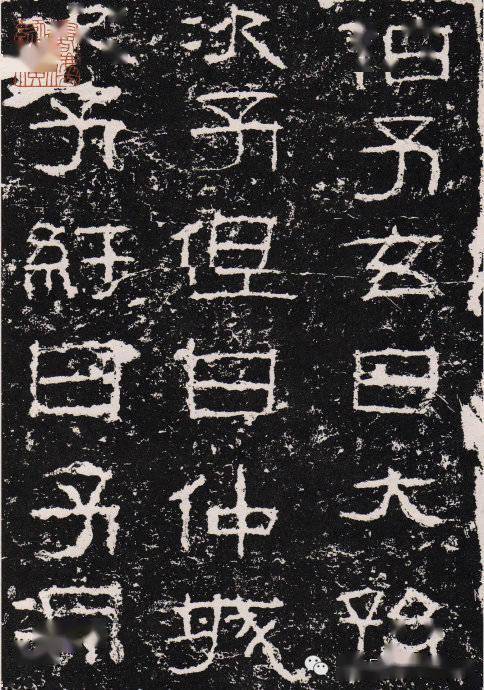 伯子玄曰大孫
次子但曰仲城
子紆曰子淵